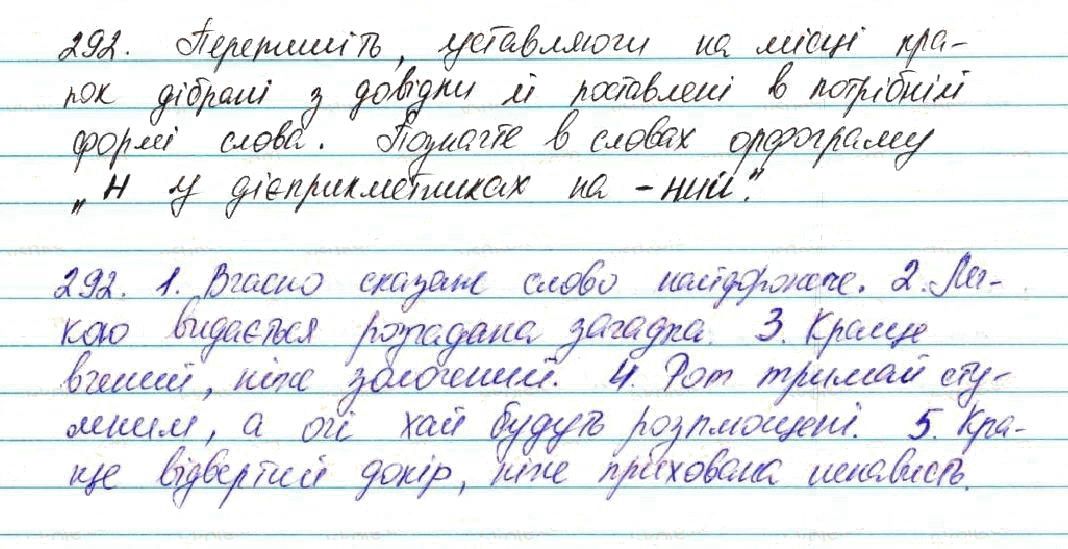 292. Перепишіть, уставляючи на місці кра-
пок дібрані з довідки й поставлені в потрібній
формі слова. Позначте в словах орфограму
„Н у дієприкметниках на -ний".
292. 1. Вчасно сказане слово найдорожче. 2. Лег-
кою видається розгадана загадка. 3. Краще
вчений, ніж золочений. 4. Рот тримай сту-
леним, а очі хай будуть розплющені. 5. Кра-
ще відвертий докір, ніж прихована ненависть.